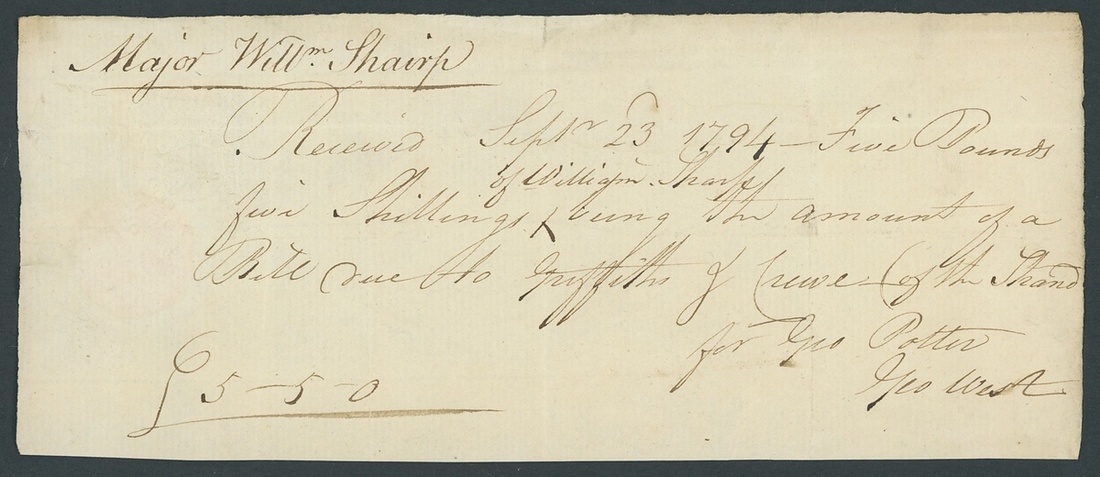 Major Willm. Shairp
Received Septr 23 1794 — Five Pounds
of William Sharp
five Shillings being the amount of a
Bill due to Griffiths & Crewe — (of the Strand
for Geo Potter
Geo West
£ 5-5-0